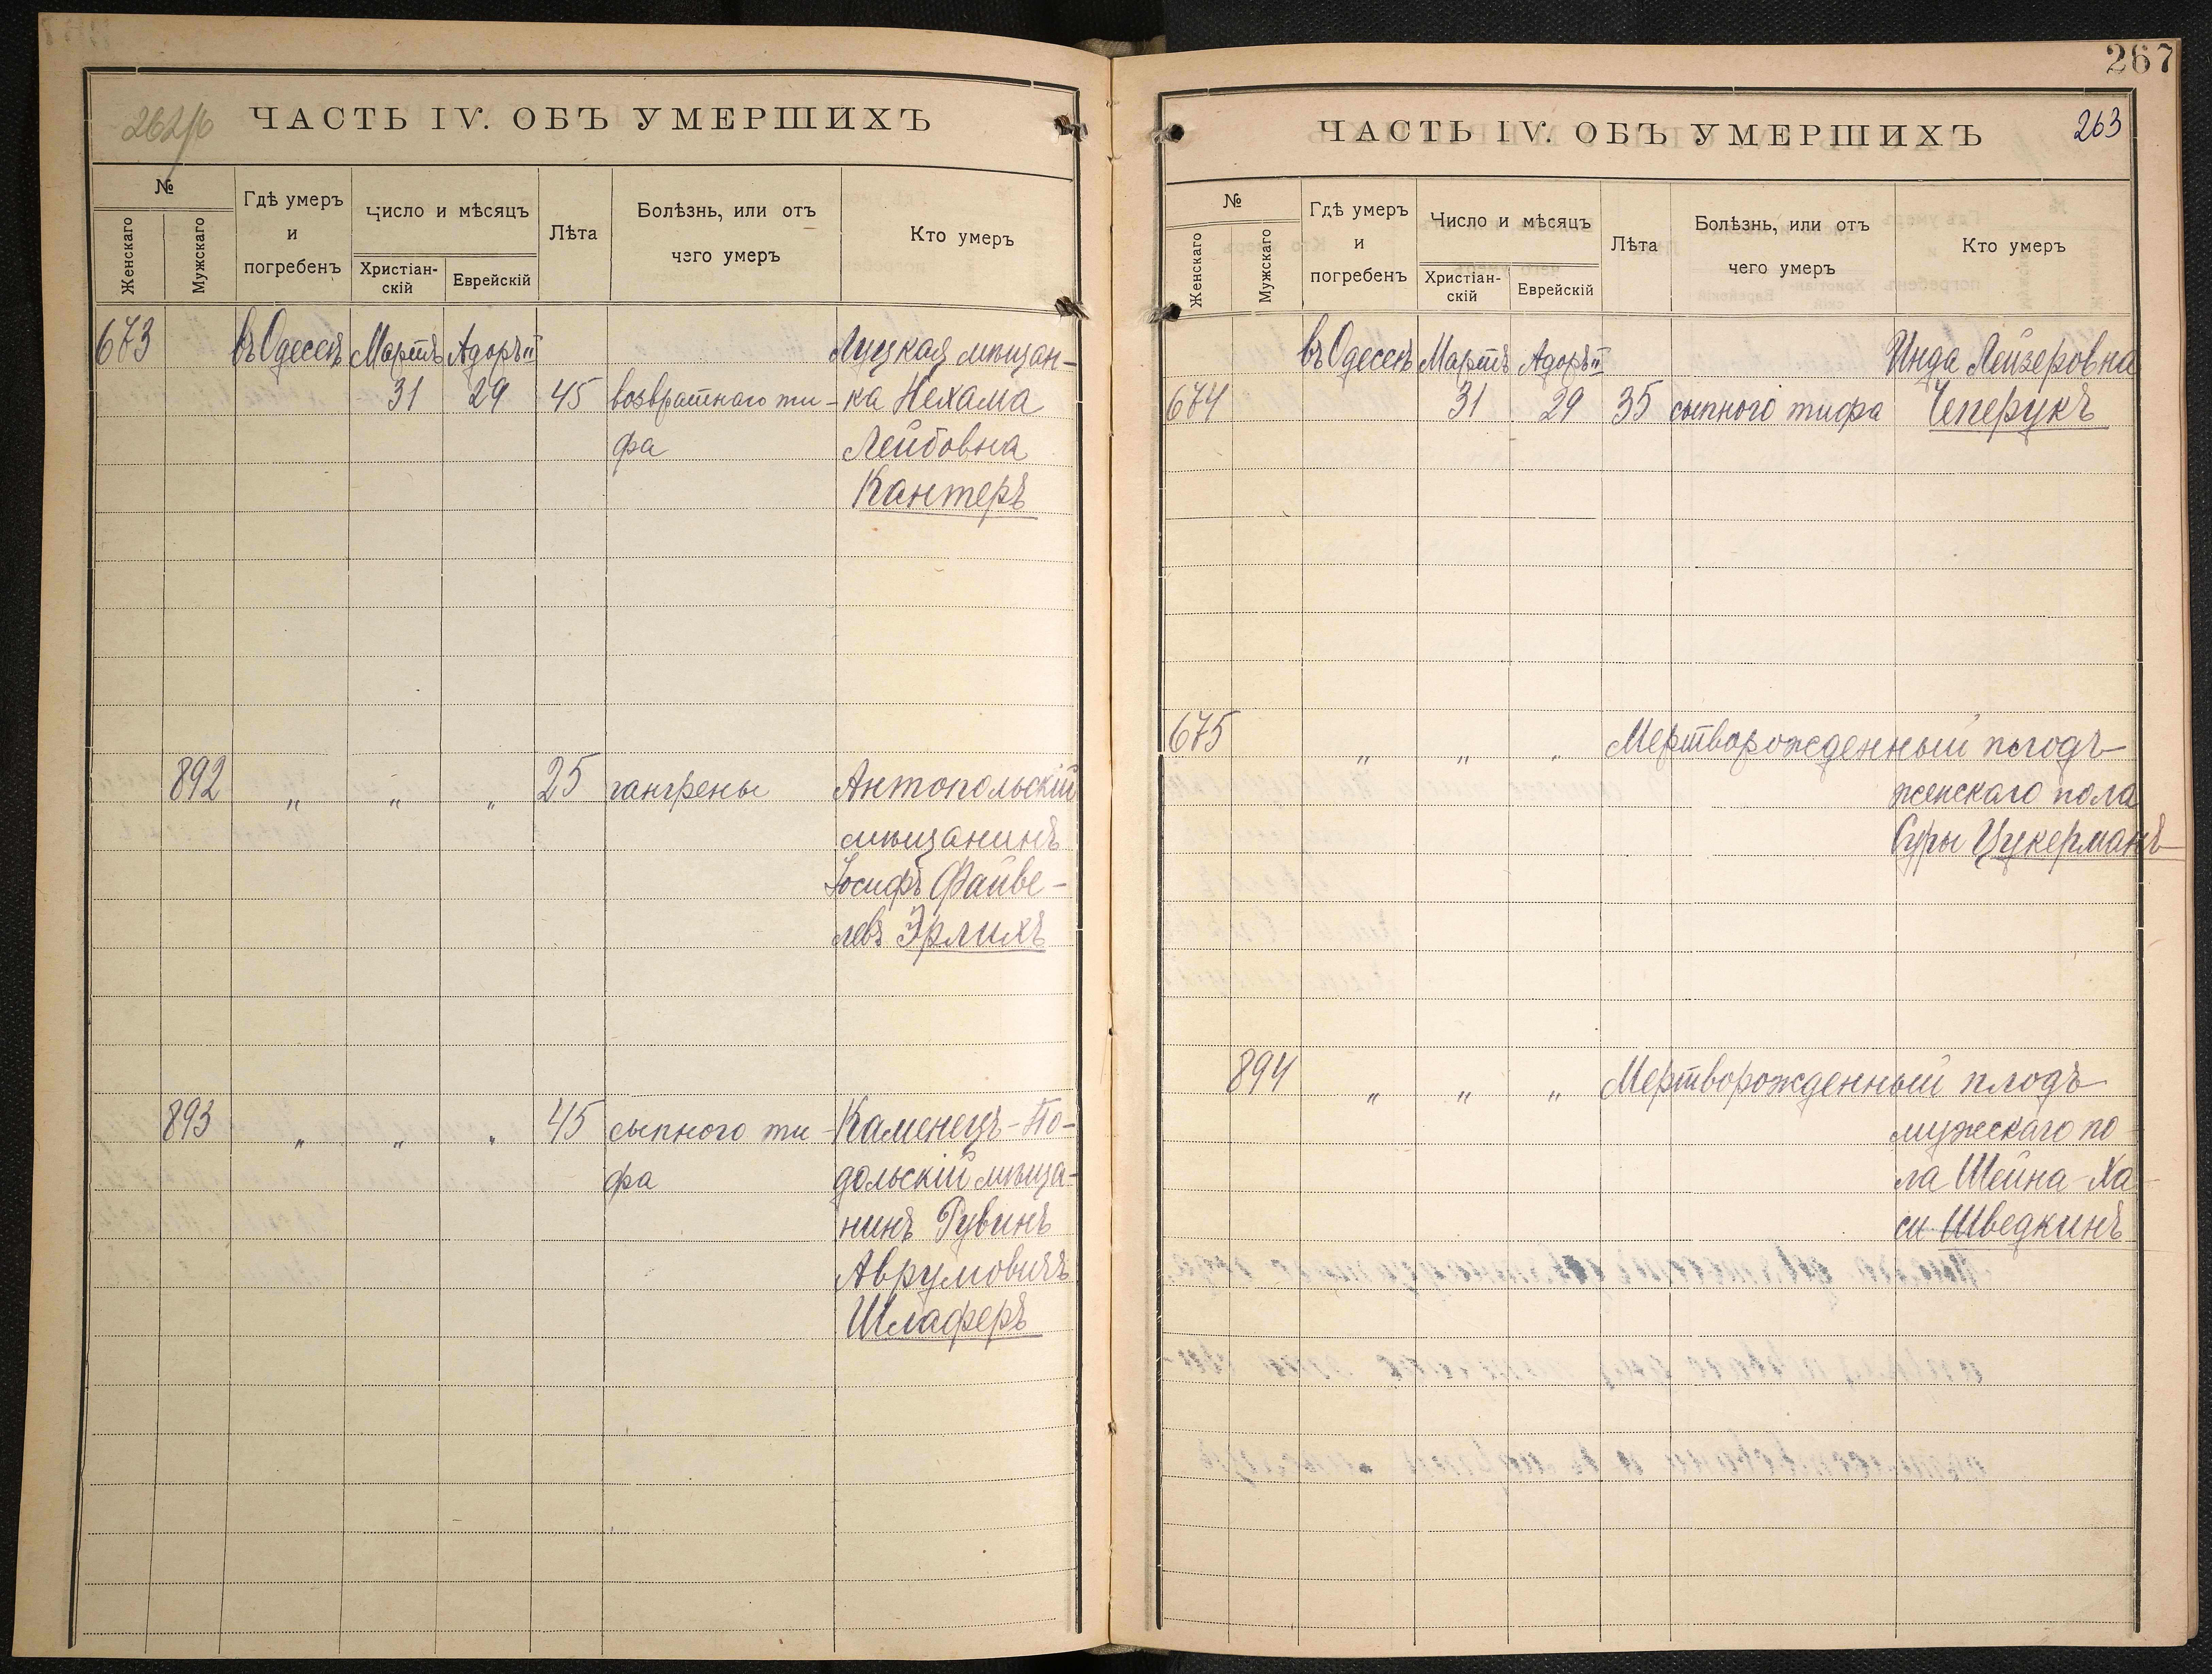 262/б
ЧАСТЬ IV. ОБЪ УМЕРШИХЪ
№
Женскаго
Мужскаго
Гдѣ умеръ
и
погребенъ
число и мѣсяцъ
Христіан-
скій
Еврейскій
Лѣта
Болѣзнь, или отъ
чего умеръ
Кто умеръ
673 въ Одессѣ Мартъ Адоръ II Луцкая мѣщан-
31 29 45 возвратнаго ти- ка Нехама
фа Лейбовна
Кантеръ
892 " " " 25 гангрены Антопольскій
мѣщанинъ
Іосифъ Файве-
левъ Эрлихъ
893 " " " 45 сыпного ти- Каменецъ-По-
фа дольскій мѣща-
нинъ Рувинъ
Аврумовичъ
Шлаферъ
267
ЧАСТЬ IV. ОБЪ УМЕРШИХЪ
263
№
Женскаго
Мужскаго
Гдѣ умеръ
и
погребенъ
Число и мѣсяцъ
Христіан-
скій
Еврейскій
Лѣта
Болѣзнь, или отъ
чего умеръ
Кто умеръ
въ Одессѣ Мартъ Адоръ II Инда Лейзеровна
674 31 29 35 сыпного тифа Чеперукъ
675 " " " Мертворожденный плодъ
женскаго пола
Суры Цукерманъ
894 " " " Мертворожденный плодъ
мужскаго по-
ла Шейна-Ха-
си Шведкинъ